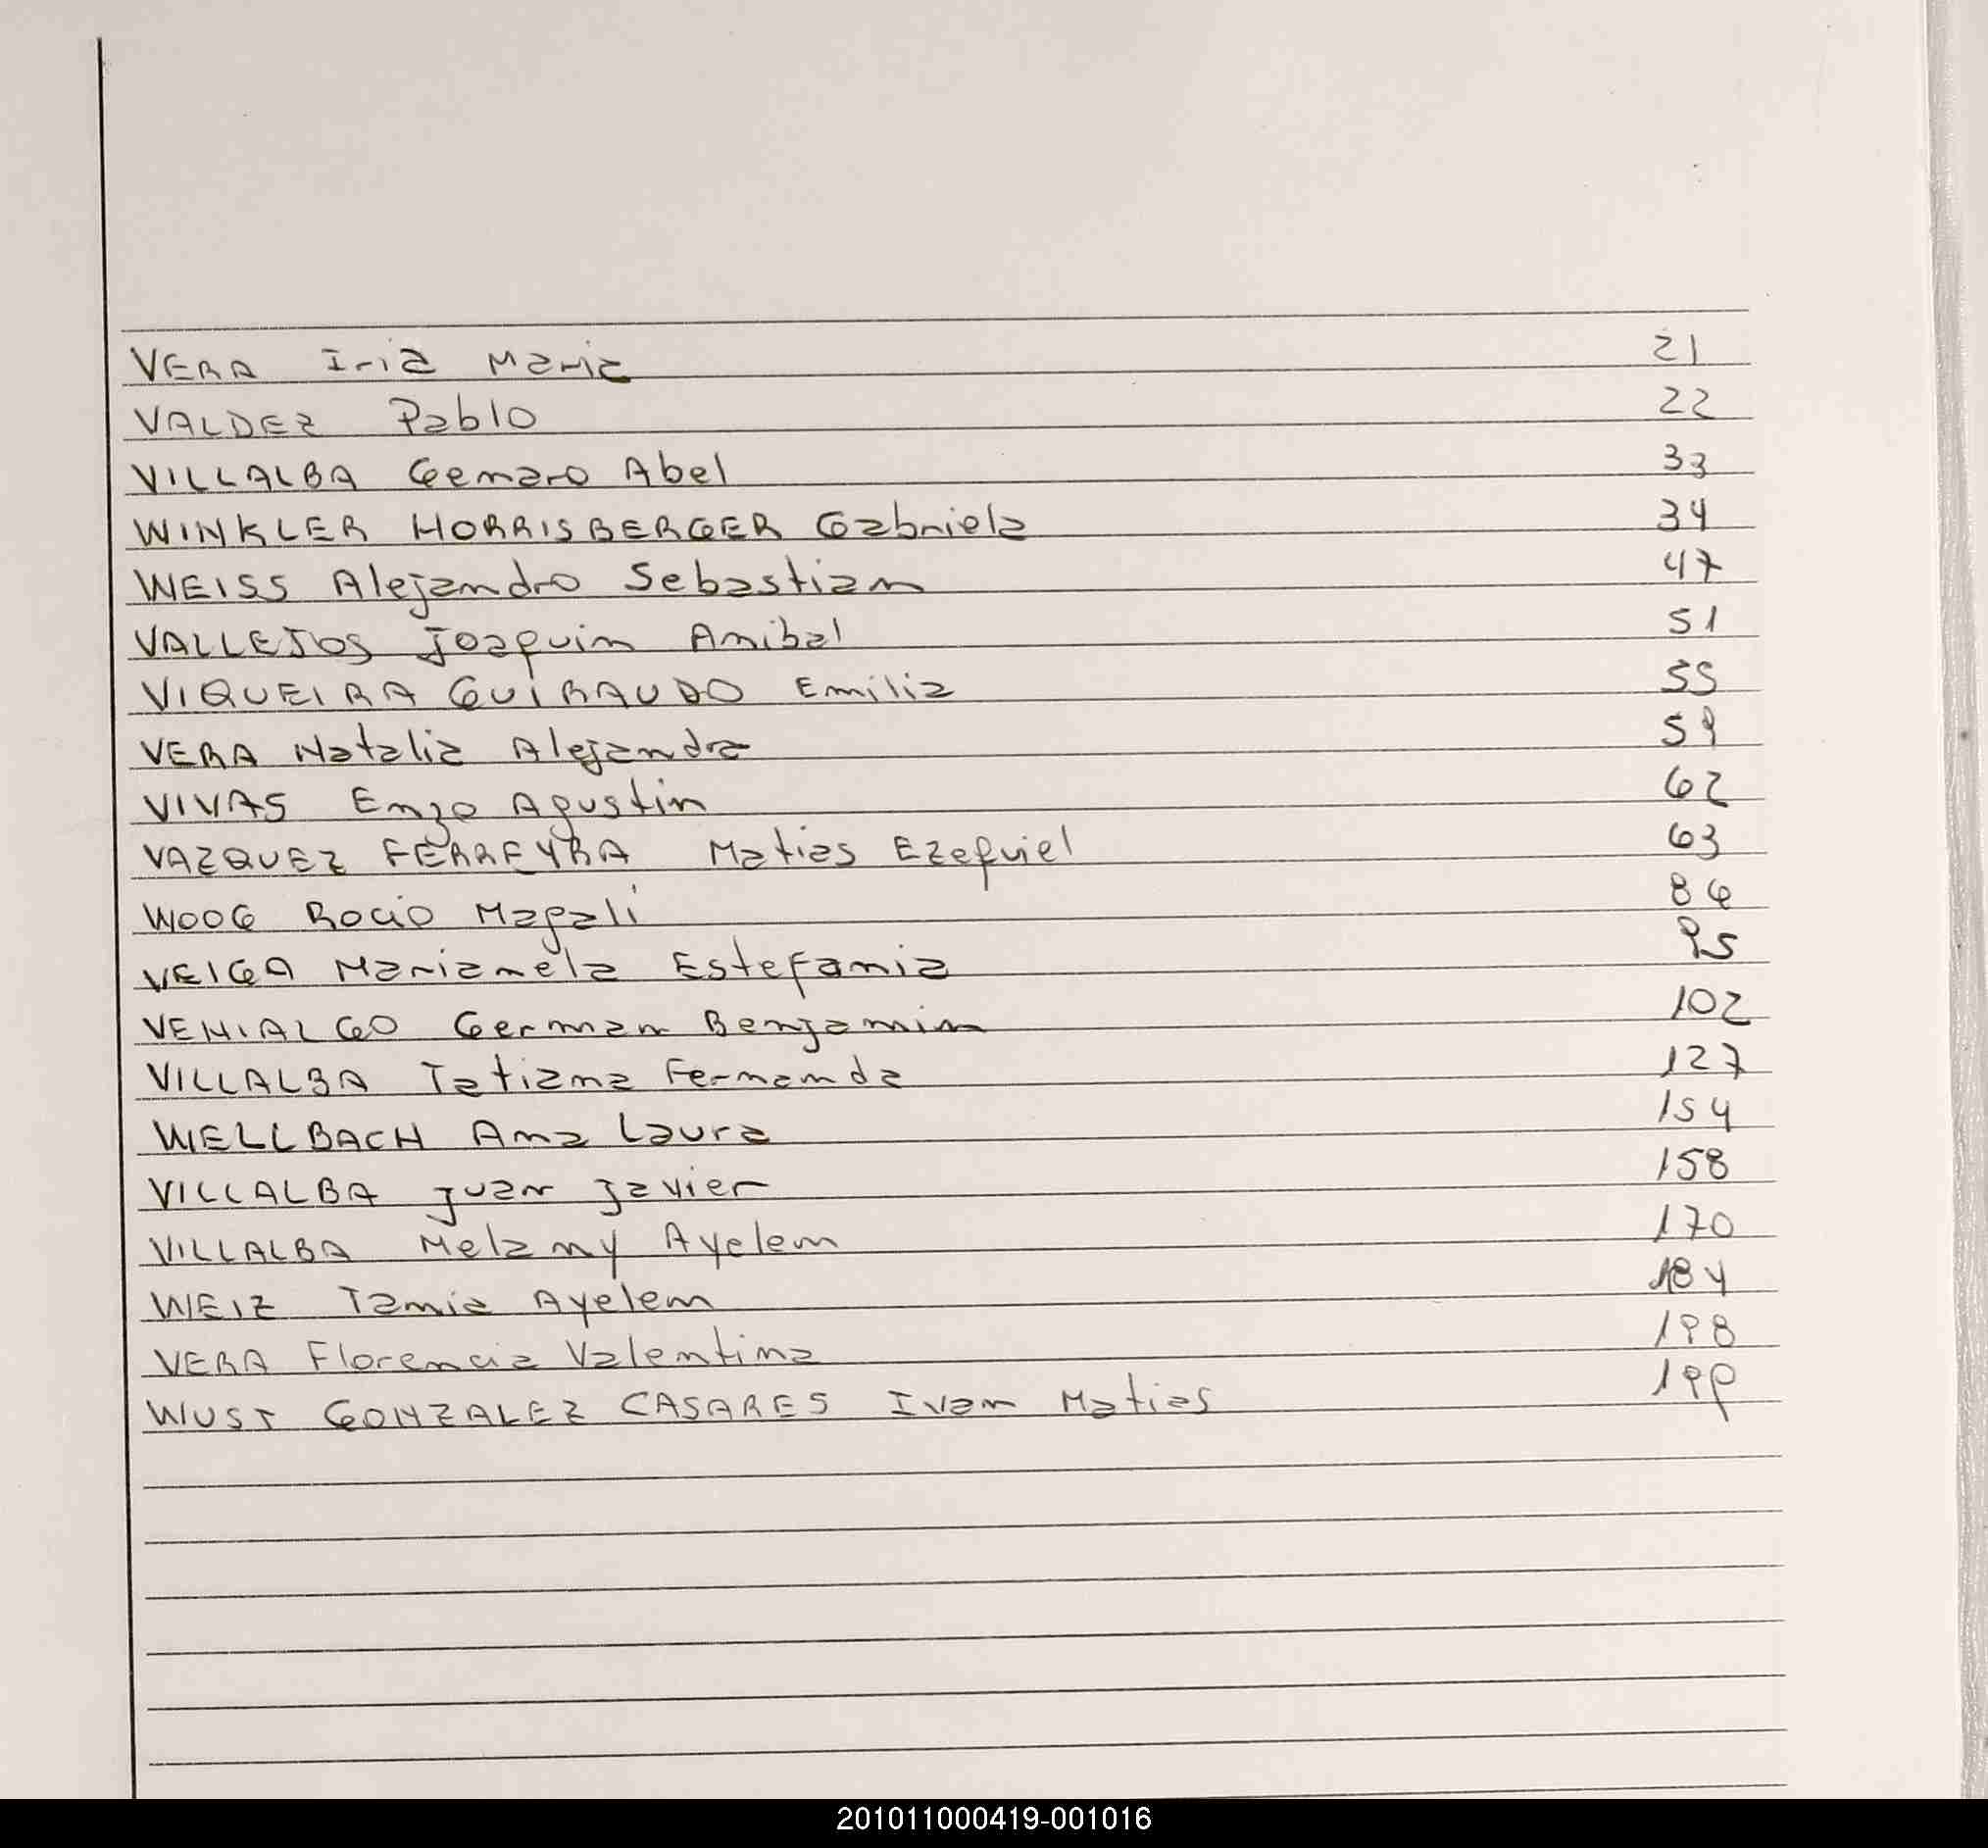 VERA Iria Maria 21
VALDEZ Pablo 22
VILLALBA Genaro Abel 33
WINKLER HORRISBERGER Gabriela 34
WEISS Alejandro Sebastian 47
VALLEJOS Joaquin Anibal 51
VIQUEIRA GUIRAUDO Emilia 55
VERA Natalia Alejandra 59
VIVAS Enzo Agustin 62
VAZQUEZ FERREYRA Matias Ezequiel 63
WOOG Rocio Magali 86
VEIGA Marianela Estefania 95
VENIALGO German Benjamin 102
VILLALBA Tatiana Fernanda 127
WELLBACH Ana Laura 154
VILLALBA Juan Javier 158
VILLALBA Melany Ayelen 170
WEIZ Tania Ayelen 184
VERA Florencia Valentina 198
WUST GONZALEZ CASARES Ivan Matias 199
201011000419-001016